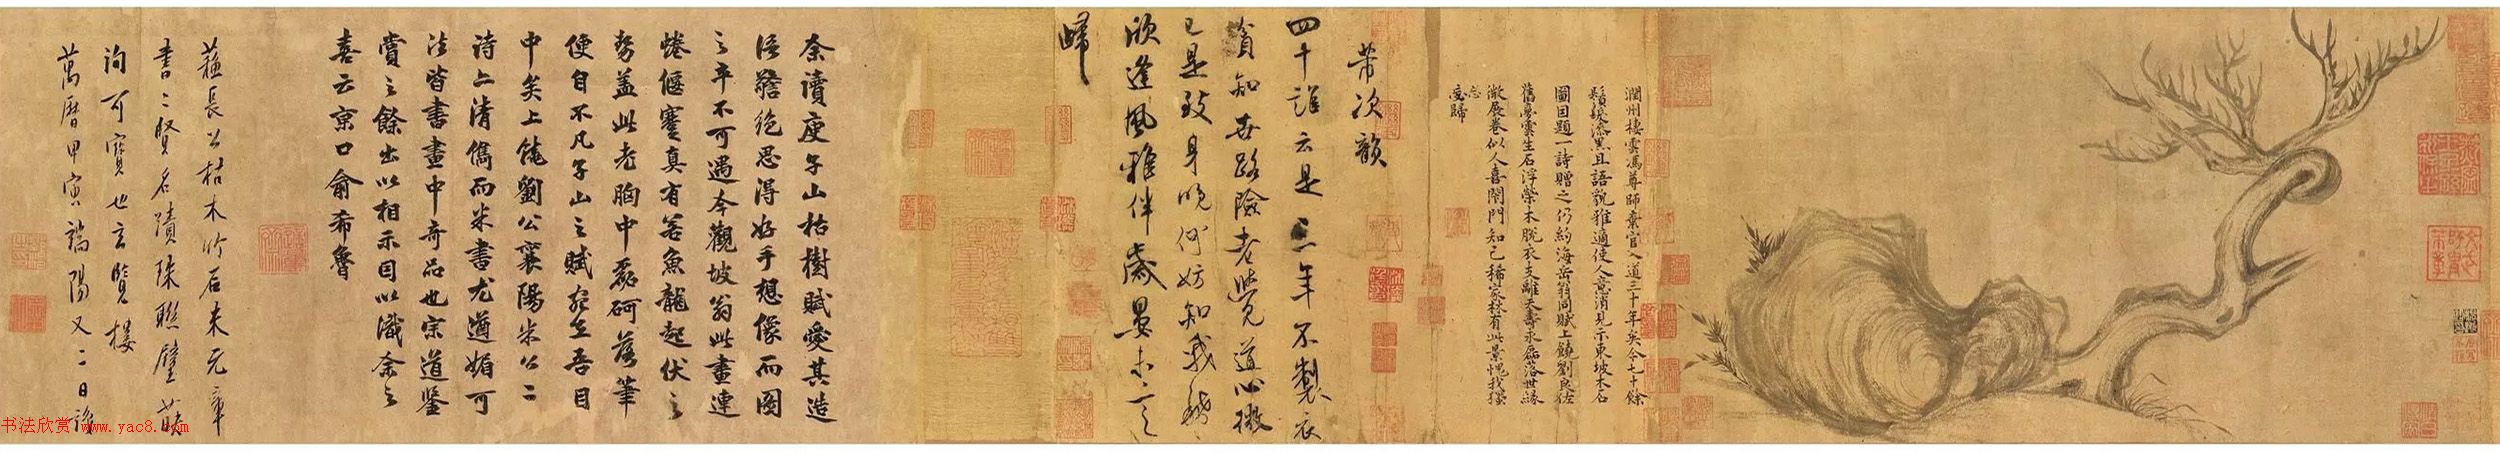 潤州棲雲馮尊師棄官入道三十年矣今七十餘
鬚髮漆黑且語貌雅適使人意消見示東坡木石
圖因題一詩贈之仍約海岳翁同賦上饒劉良佐
舊夢雲生石浮榮木脫衣支離天壽永磊落世緣
微展卷似人喜閉門知己稀家林有此景愧我獨
忘歸
芾次韻
四十誰云是三年不製衣
貧知世路險老覺道心微
已是致身晚何妨知我稀
欣逢風雅伴歲晏未言
歸
余讀庾子山枯樹賦愛其造
語警絕思得好手想像而圖
之卒不可遇今觀坡翁此畫連
蜷偃蹇真有若魚龍起伏之
勢蓋此老胸中磊砢落筆
便自不凡子山之賦宛在吾目
中矣上饒劉公襄陽米公二
詩亠清雋而米書尤遒媚可
法皆書畫中奇品也宗道鑒
賞之餘出以相示因以識余之
喜云京口俞希魯
蘇長公枯木竹石米元章
書二賢名蹟珠聯璧
詢可寶也言
萬曆甲寅端陽又二日
书法欣赏 www.yac8.com